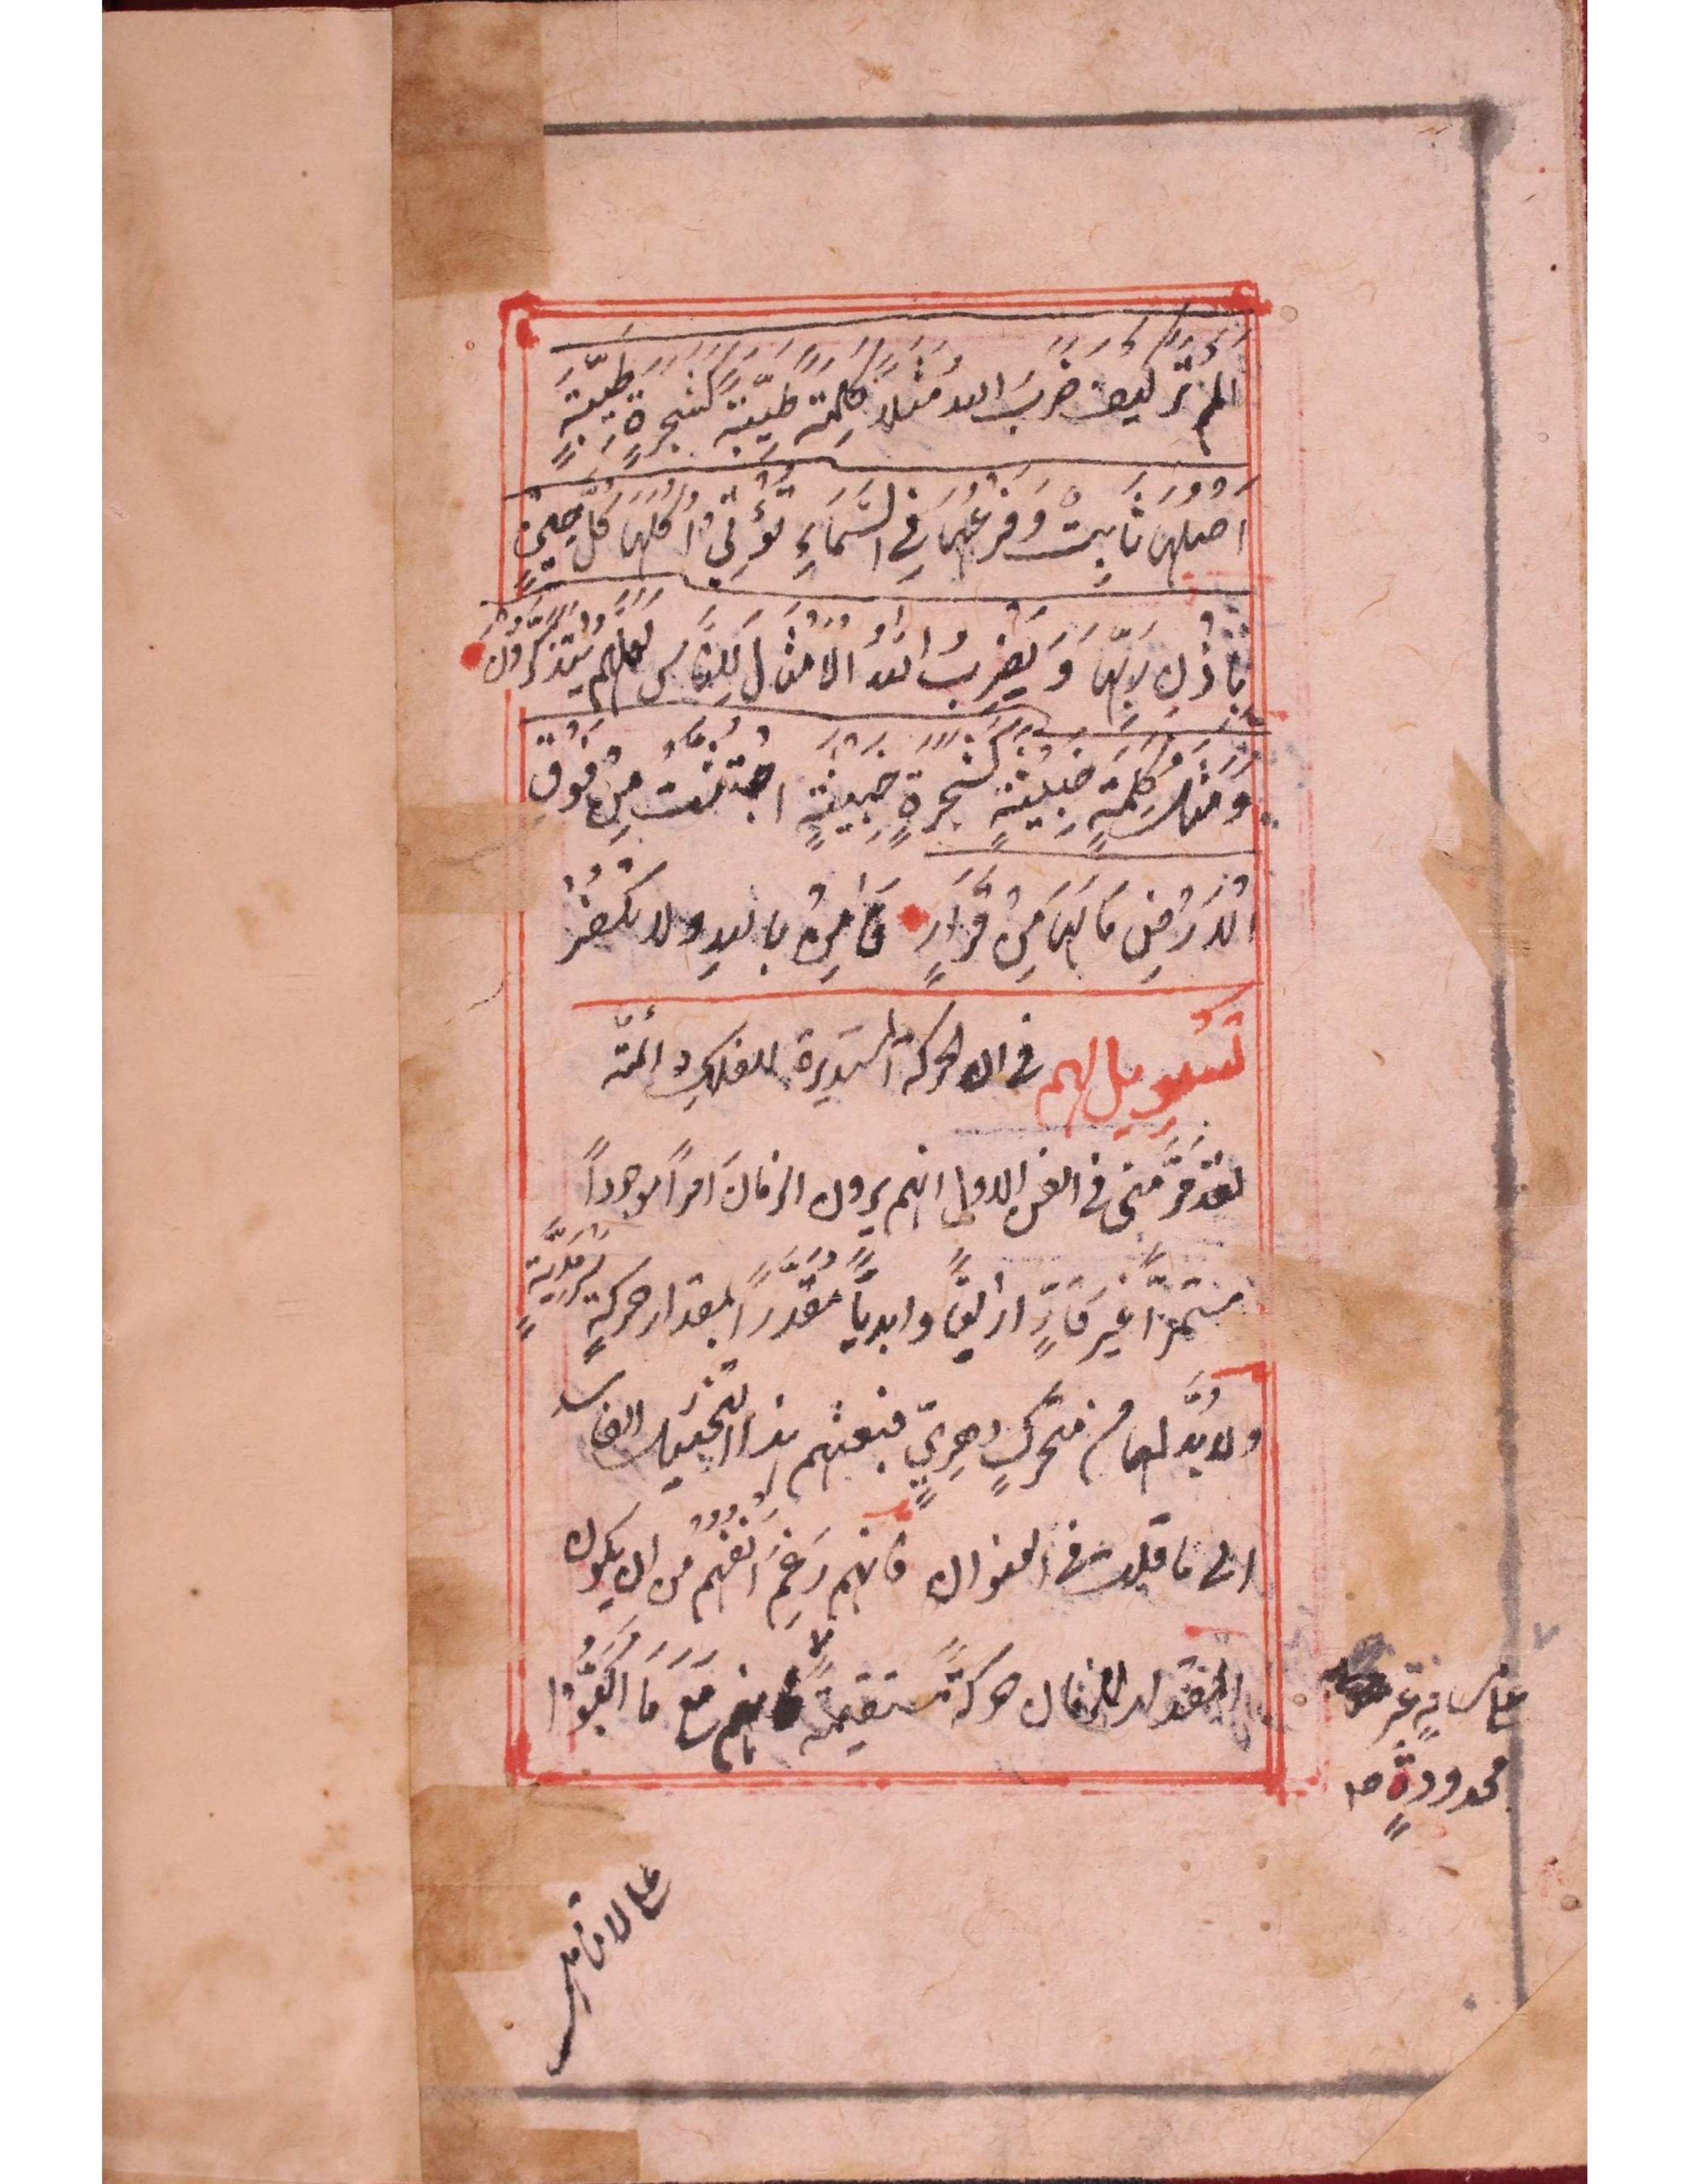 الم تر كيف ضَرَبَ الله مَثَلًا كَلِمَةً طَيِّبَةً كَشَجَرَةٍ طَيِّبَةٍ
اَصلُهَا ثَابِتٌ وَفَرْعُهَا فِي السَّمَاءِ تُؤْتِي اُكُلَهَا كُلَّ حِينٍ
بِاِذْنِ رَبِّهَا وَيَضْرِبُ اللهُ الْاَمْثَالَ لِلنَّاسِ لَعَلَّهُمْ يَتَذَكَّرُونَ
وَمَثَلُ كَلِمَةٍ خَبِيثَةٍ كَشَجَرَةٍ خَبِيثَةٍ اجْتُثَّتْ مِنْ فَوْقِ
الْاَرْضِ مَا لَهَا مِنْ قَرَارٍ فَآمِنْ بِاللهِ ولا تكْفُرْ
تَسْوِيل لهم في ان الحركة المستَدِيرة للفلكِ دائمّة
لقد مَرَّ مِنّى في الفن الاول انهم يرون الزمانَ امرًا موجودًا
مستمرًّا غيرَ قَارٍّ ازليًّا وابديًّا مُقَدَّرًا بمقدار حركةٍ سَرْمَدِيَّةٍ
ولا بُدَّ لها من متحركٍ دهريٍّ فبعثهم هذا التخييل الفاسد
الى ما قيلت في العنوان فانهم رَغِمَ اَنْفُهُم من ان يكون
المقدار للزمان حركةً مستقيمةً فانهم مَعَ مَا اَكَبُّوا
على مسافةٍ غير
محدودةٍ صه
على لا تناهى